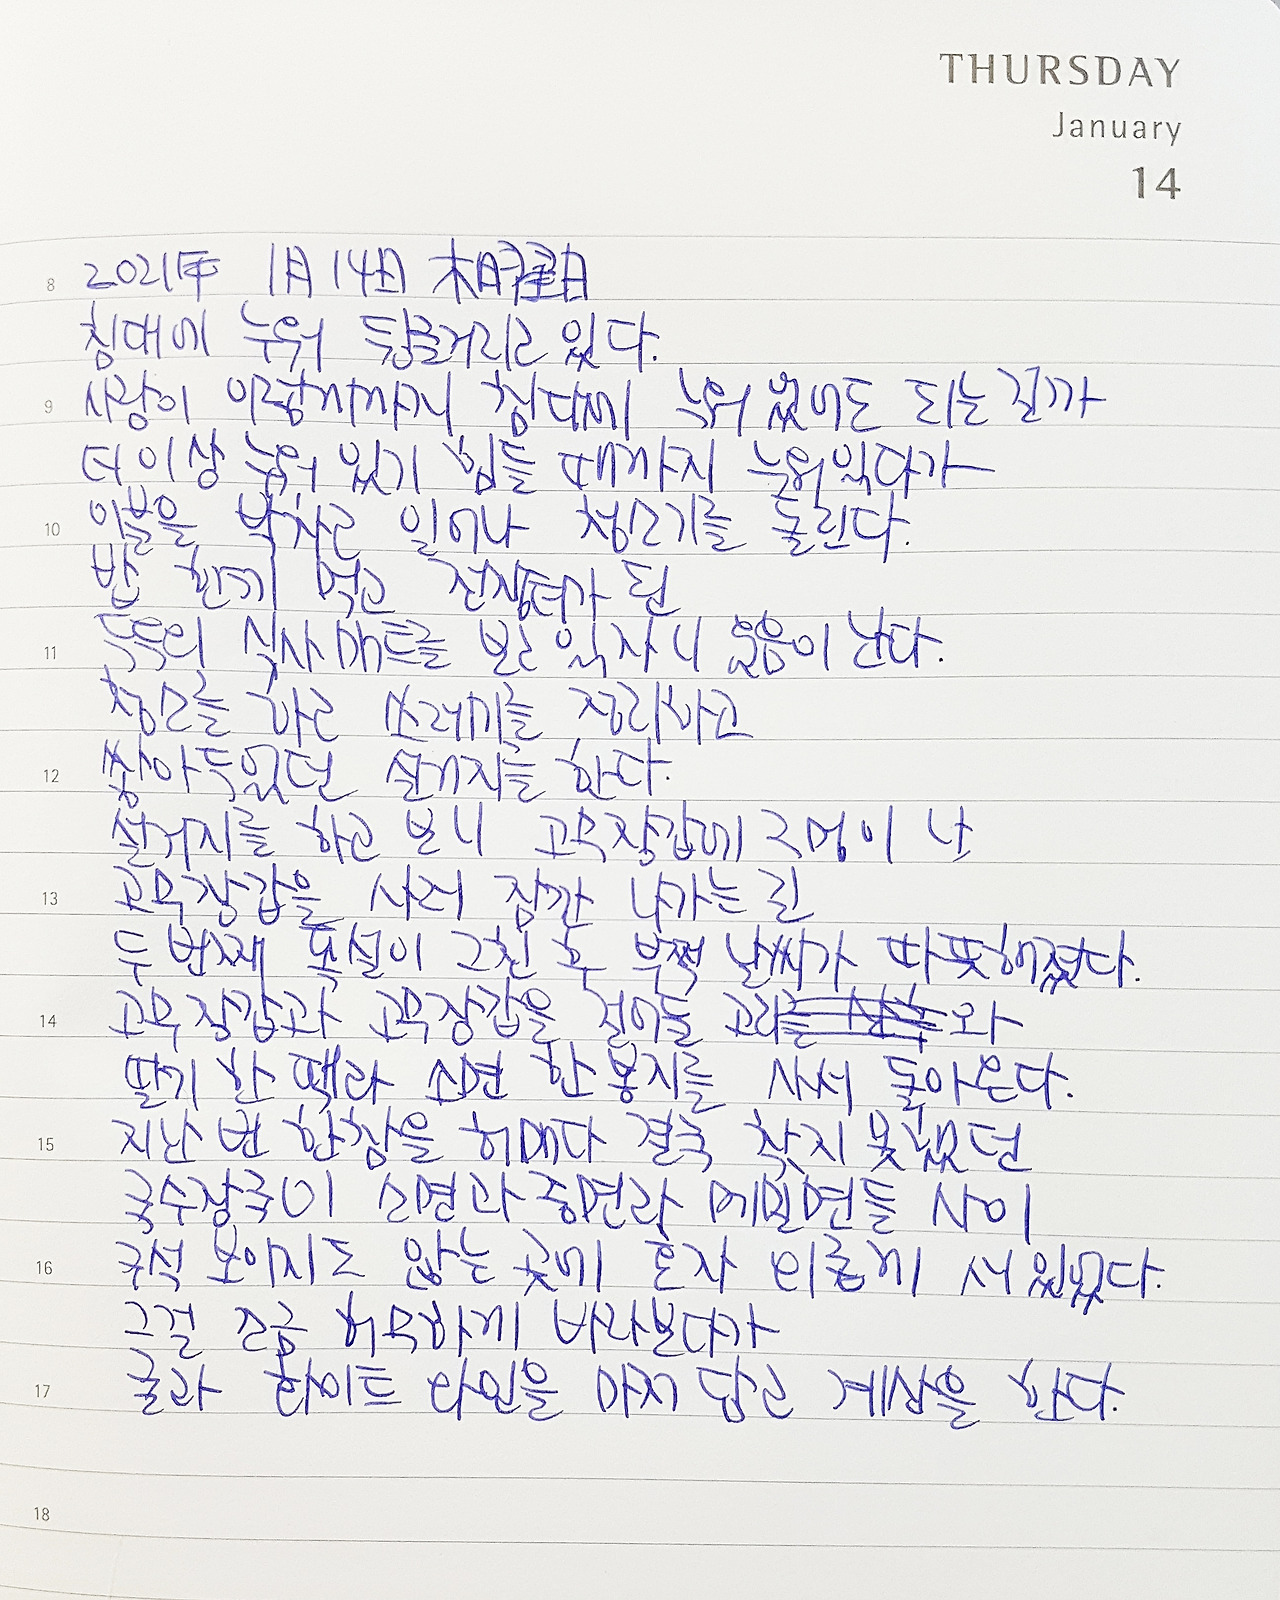 THURSDAY
January
14
8 2021年 1月 14日 木曜日
침대에 누워 뒹굴거리고 있다.
9 사람이 이렇게까지 침대에 누워 있어도 되는 걸까
더 이상 누워 있기 힘들 때까지 누워있다가
10 이불을 박차고 일어나 청소기를 돌린다.
밥 한끼 먹고 전쟁터가 된
11 뚝뚝의 식사 매트를 보고 있자니 웃음이 난다.
청소를 하고 쓰레기를 정리하고
12 쌓아두었던 설거지를 한다.
설거지를 하고 보니 고무장갑에 구멍이 나
13 고무장갑을 사러 잠깐 나가는 길
두 번째 폭설이 그친 후 부쩍 날씨가 따뜻해졌다.
14 고무장갑과 고무장갑을 걸어둘 고리와
딸기 한 팩과 소면 한 봉지를 사서 돌아온다.
15 지난 번 한참을 헤매다 결국 찾지 못했던
국수장국이 소면과 중면과 메밀면들 사이
16 구석 보이지도 않는 곳에 혼자 외롭게 서 있었다.
그걸 조금 허무하게 바라보다가
17 귤과 화이트 와인을 마저 담고 계산을 한다.
18